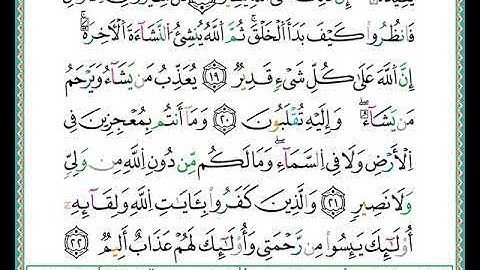 فَانظُرُوا۟ كَيْفَ بَدَأَ ٱلْخَلْقَ ثُمَّ ٱللَّهُ يُنشِئُ ٱلنَّشْأَةَ ٱلْـَٔاخِرَةَ
إِنَّ ٱللَّهَ عَلَىٰ كُلِّ شَىْءٍ قَدِيرٌ ١٩ يُعَذِّبُ مَن يَشَآءُ وَيَرْحَمُ
مَن يَشَآءُ وَإِلَيْهِ تُقْلَبُونَ ٢٠ وَمَآ أَنتُم بِمُعْجِزِينَ فِى
ٱلْأَرْضِ وَلَا فِى ٱلسَّمَآءِ وَمَا لَكُم مِّن دُونِ ٱللَّهِ مِن وَلِىٍّ
وَلَا نَصِيرٍ ٢١ وَٱلَّذِينَ كَفَرُوا۟ بِـَٔايَـٰتِ ٱللَّهِ وَلِقَآئِهِۦٓ
أُو۟لَـٰٓئِكَ يَئِسُوا۟ مِن رَّحْمَتِى وَأُو۟لَـٰٓئِكَ لَهُمْ عَذَابٌ أَلِيمٌ ٢٢